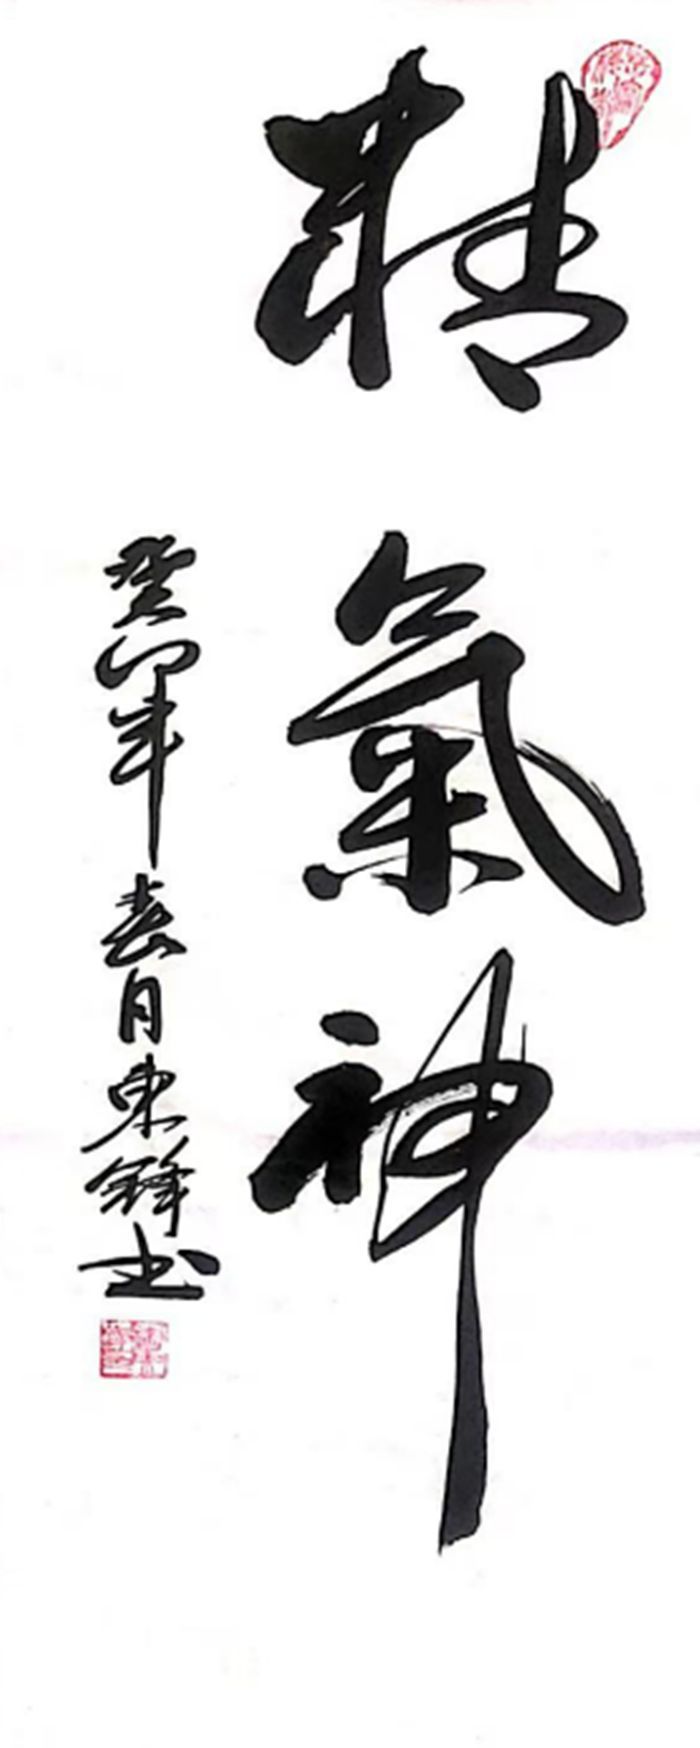 精氣神
癸卯年春月東鋒书